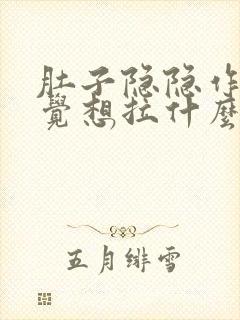 肚子隐隐作
觉想拉什麽
五月绯雪